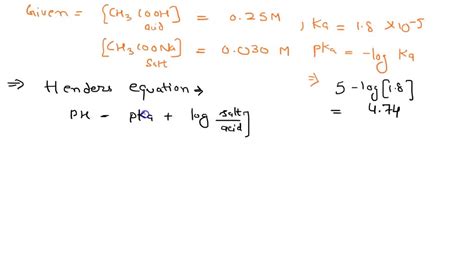 Given = [CH3COOH] = 0.25M , Ka = 1.8 × 10^-5
acid
[CH3COONa] = 0.030 M pKa = -log Ka
salt
⇒ Henders equation → ⇒ 5 - log[1.8]
PH = pKa + log salt/acid] = 4.74